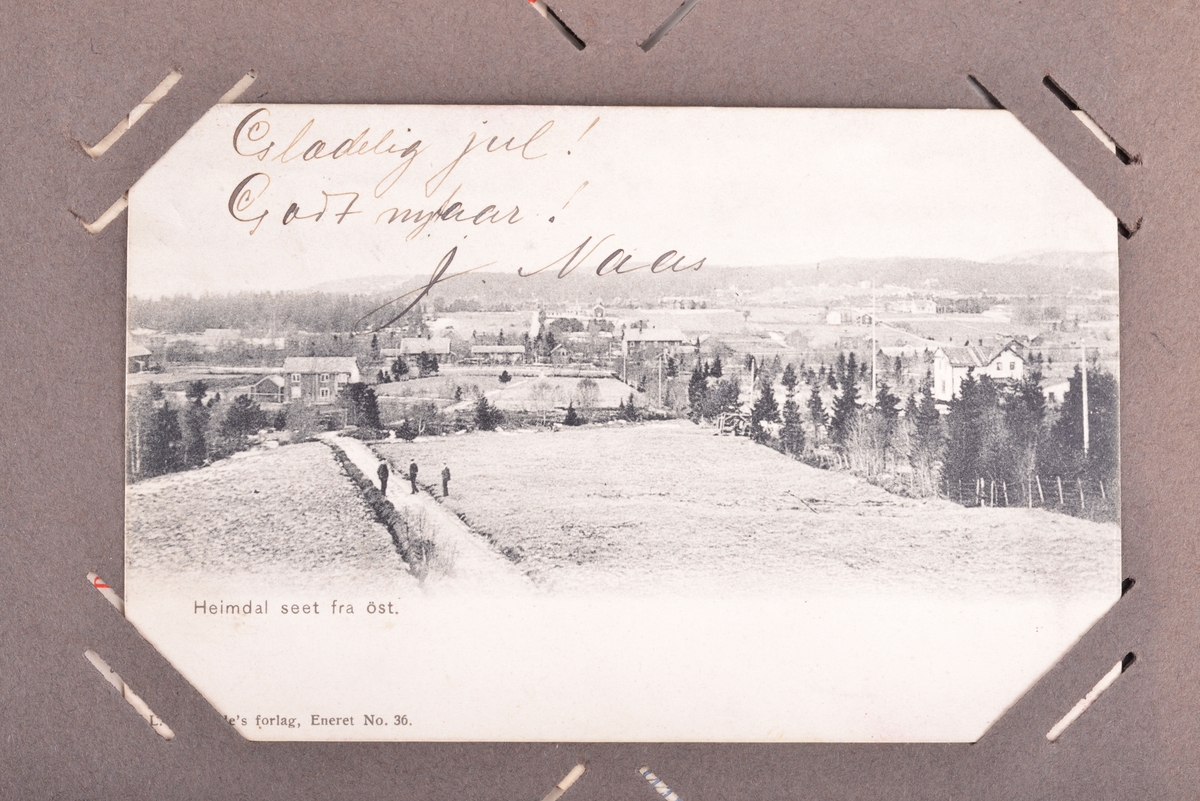 Glædelig jul!
Godt nytaar!
J. Naas
Heimdal seet fra öst.
L. le's forlag, Eneret No. 36.